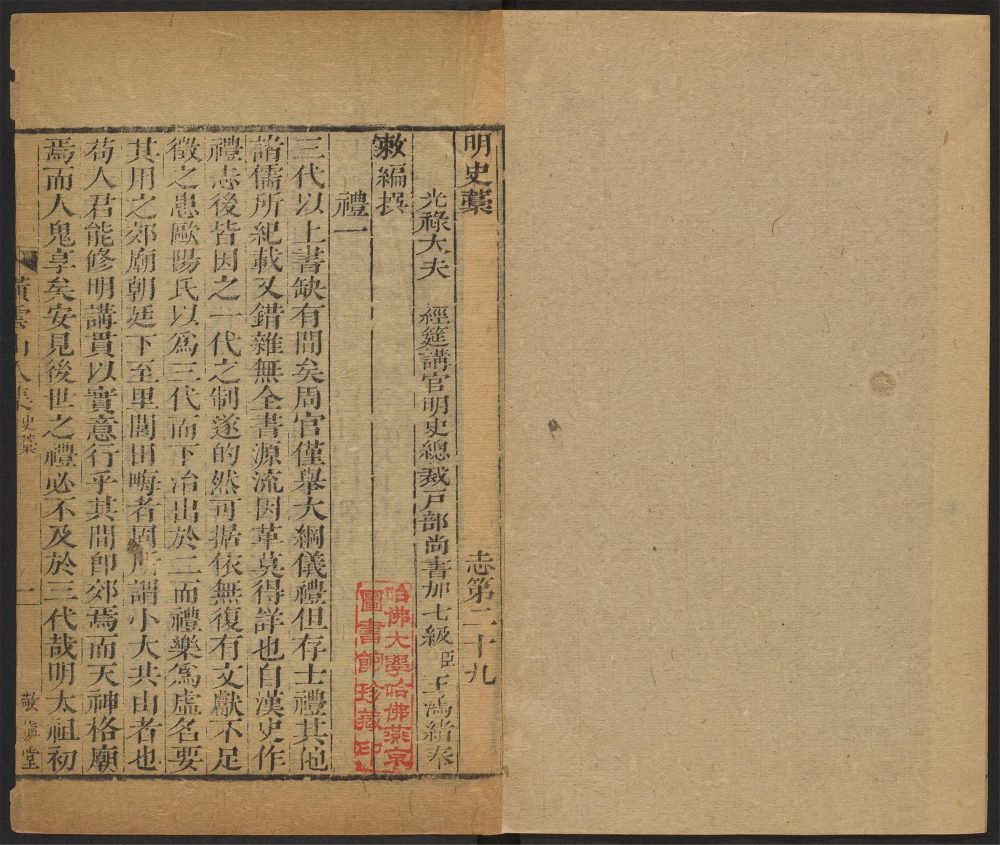 明史藁 志第二十九
光祿大夫 經筵講官明史總裁戶部尚書加七級臣王鴻緒奉
敕編撰
禮一
三代以上書缺有間矣周官僅舉大綱儀禮但存士禮其他
諸儒所紀載又錯雜無全書源流因革莫得詳也自漢史作
禮志後皆因之一代之制遂的然可据依無復有文獻不足
徵之患歐陽氏以爲三代而下治出於二而禮樂爲虛名要
其用之郊廟朝廷下至里閭田畮者固所謂小大共由者也
苟人君能修明講貫以實意行乎其間卽郊焉而天神格廟
焉而人鬼享矣安見後世之禮必不及於三代哉明太祖初
橫雲山人集 史藁 一 敬愼堂
哈佛大學哈佛燕京
圖書館珍藏印